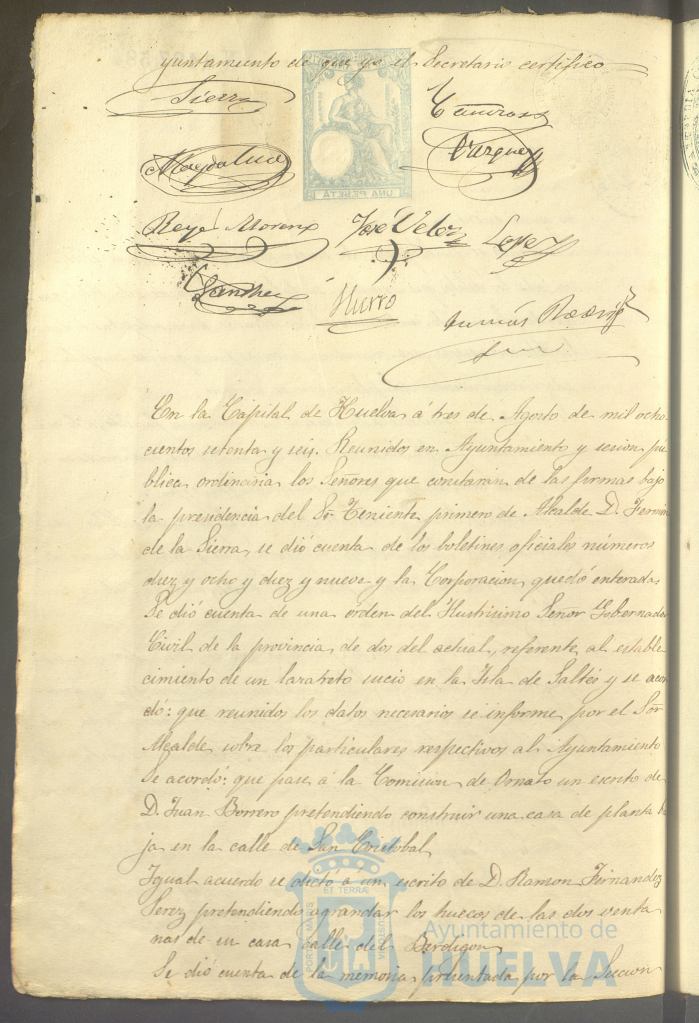 yuntamiento de que yo el Secretario certifico
Sierra
UNA PESETA
Vazquez
Magdalena
Reyé Moreno
José Velez
Lopez
Sanchez
Hurro
Tomás
En la Capital de Huelva á tres de Agosto de mil ocho
cientos setenta y seis. Reunidos en Ayuntamiento y sesion pú
blica ordinaria los Señores que constarán de las firmas bajo
la presidencia del Sr Teniente primero de Alcalde D. Fermin
de la Sierra, se dió cuenta de los boletines oficiales números
diez y ocho y diez y nueve y la Corporacion quedó enterada.
Se dió cuenta de una orden del Ilustrisimo Señor Gobernador
Civil de la provincia de dos del actual, referente al estable
cimiento de un lazareto sucio en la Isla de Saltés y se acor
dó: que reunidos los datos necesarios se informe por el Sor
Alcalde sobre los particulares respectivos al Ayuntamiento
Se acordó: que pase á la Comision de Ornato un escrito de
D. Juan Borrero pretendiendo construir una casa de planta ba
ja en la calle de San Cristobal
Igual acuerdo se dictó á un escrito de D. Ramon Fernandez
Perez pretendiendo agrandar los huecos de las dos venta
nas de su casa calle del Berdigon
Se dió cuenta de la memoria presentada por la Seccion
PORTUS MARIS
ET TERRÆ
CUSTODIA
Ayuntamiento de
HUELVA